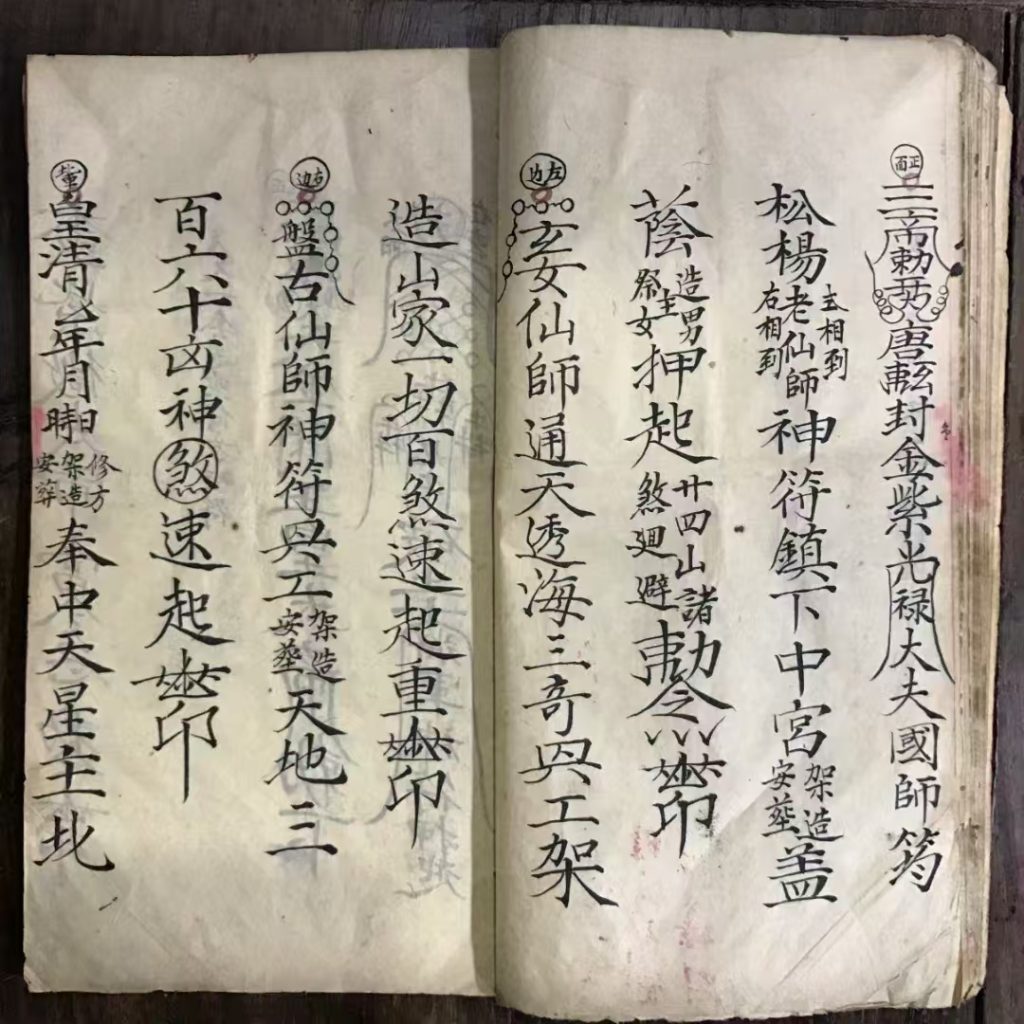 正面
三帝勅 唐 封金紫光禄大夫國師筠
松楊老仙師神符鎮下中宮架造安葬盖
右相到
蔭造主男祭女押起廿四山諸煞廻避勅令 印
左边
仙師通天透海三奇興工架
造山家一切百煞速起重 印
右边
盤古仙師神符興工架造安葬天地三
百六十凶神煞速起 印
皇清 年月日時修方架造安葬奉中天星主北